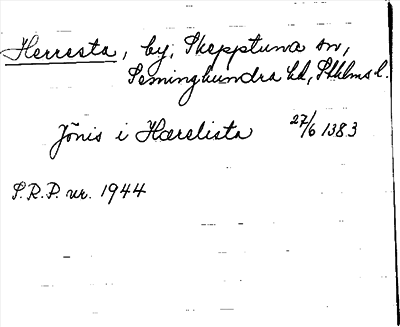 Herresta, by, Skepptuna sn,
Seminghundra hd, Sthlms l.
Jönis i Hærelista 27/6 1383
S.R.P. nr. 1944